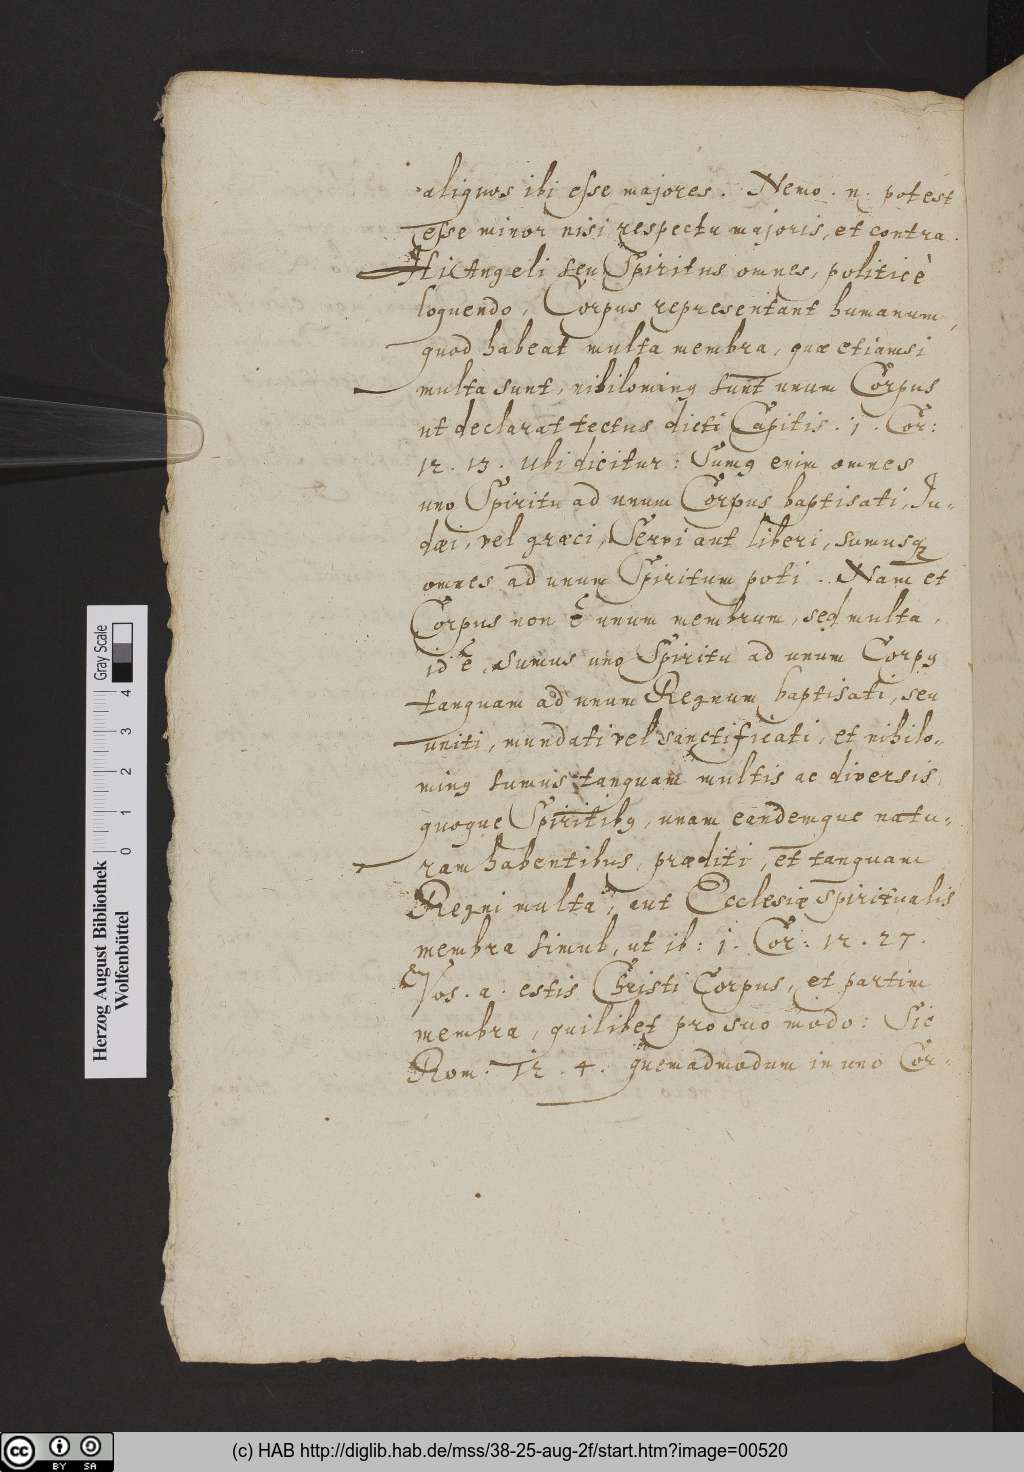 aliquos ibi esse majores. Nemo. n. potest
esse minor nisi respectu majoris, et contra.
Hi Angeli seu Spiritus omnes, politicè
loquendo, Corpus representant humanum,
quod habeat multa membra, quæ etiamsi
multa sunt, nihiloming sunt unum Corpus
ut declarat tectus dicti Capitis. 1. Cor:
12. 13. Ubi dicitur: Sumg enim omnes
uno Spiritu ad unum Corpus baptisati, Ju-
dæi, vel græci, Servi aut liberi, sumusq
omnes ad unum Spiritum poti. Nam et
Corpus non ē unum membrum, sed multa,
id ē, sumus uno Spiritu ad unum Corpg
tanquam ad unum Regnum baptisati, seu
uniti, mundati vel sanctificati, et nihilo-
ming sumus tanquam multis ac diversis
quoque Spiritibg, unam eandemque natu-
ram habentibus, præditi, et tanquam
Regni multa, aut Ecclesiæ spiritualis
membra simul, ut ib: 1. Cor: 12. 27.
Vos. a. estis Christi Corpus, et partim
membra, quilibet pro suo modo: Sic
Rom. 12. 4. quemadmodum in uno Cor-
Herzog August Bibliothek
Wolfenbüttel
0 1 2 3 4
Gray Scale
(c) HAB http://diglib.hab.de/mss/38-25-aug-2f/start.htm?image=00520
cc BY SA